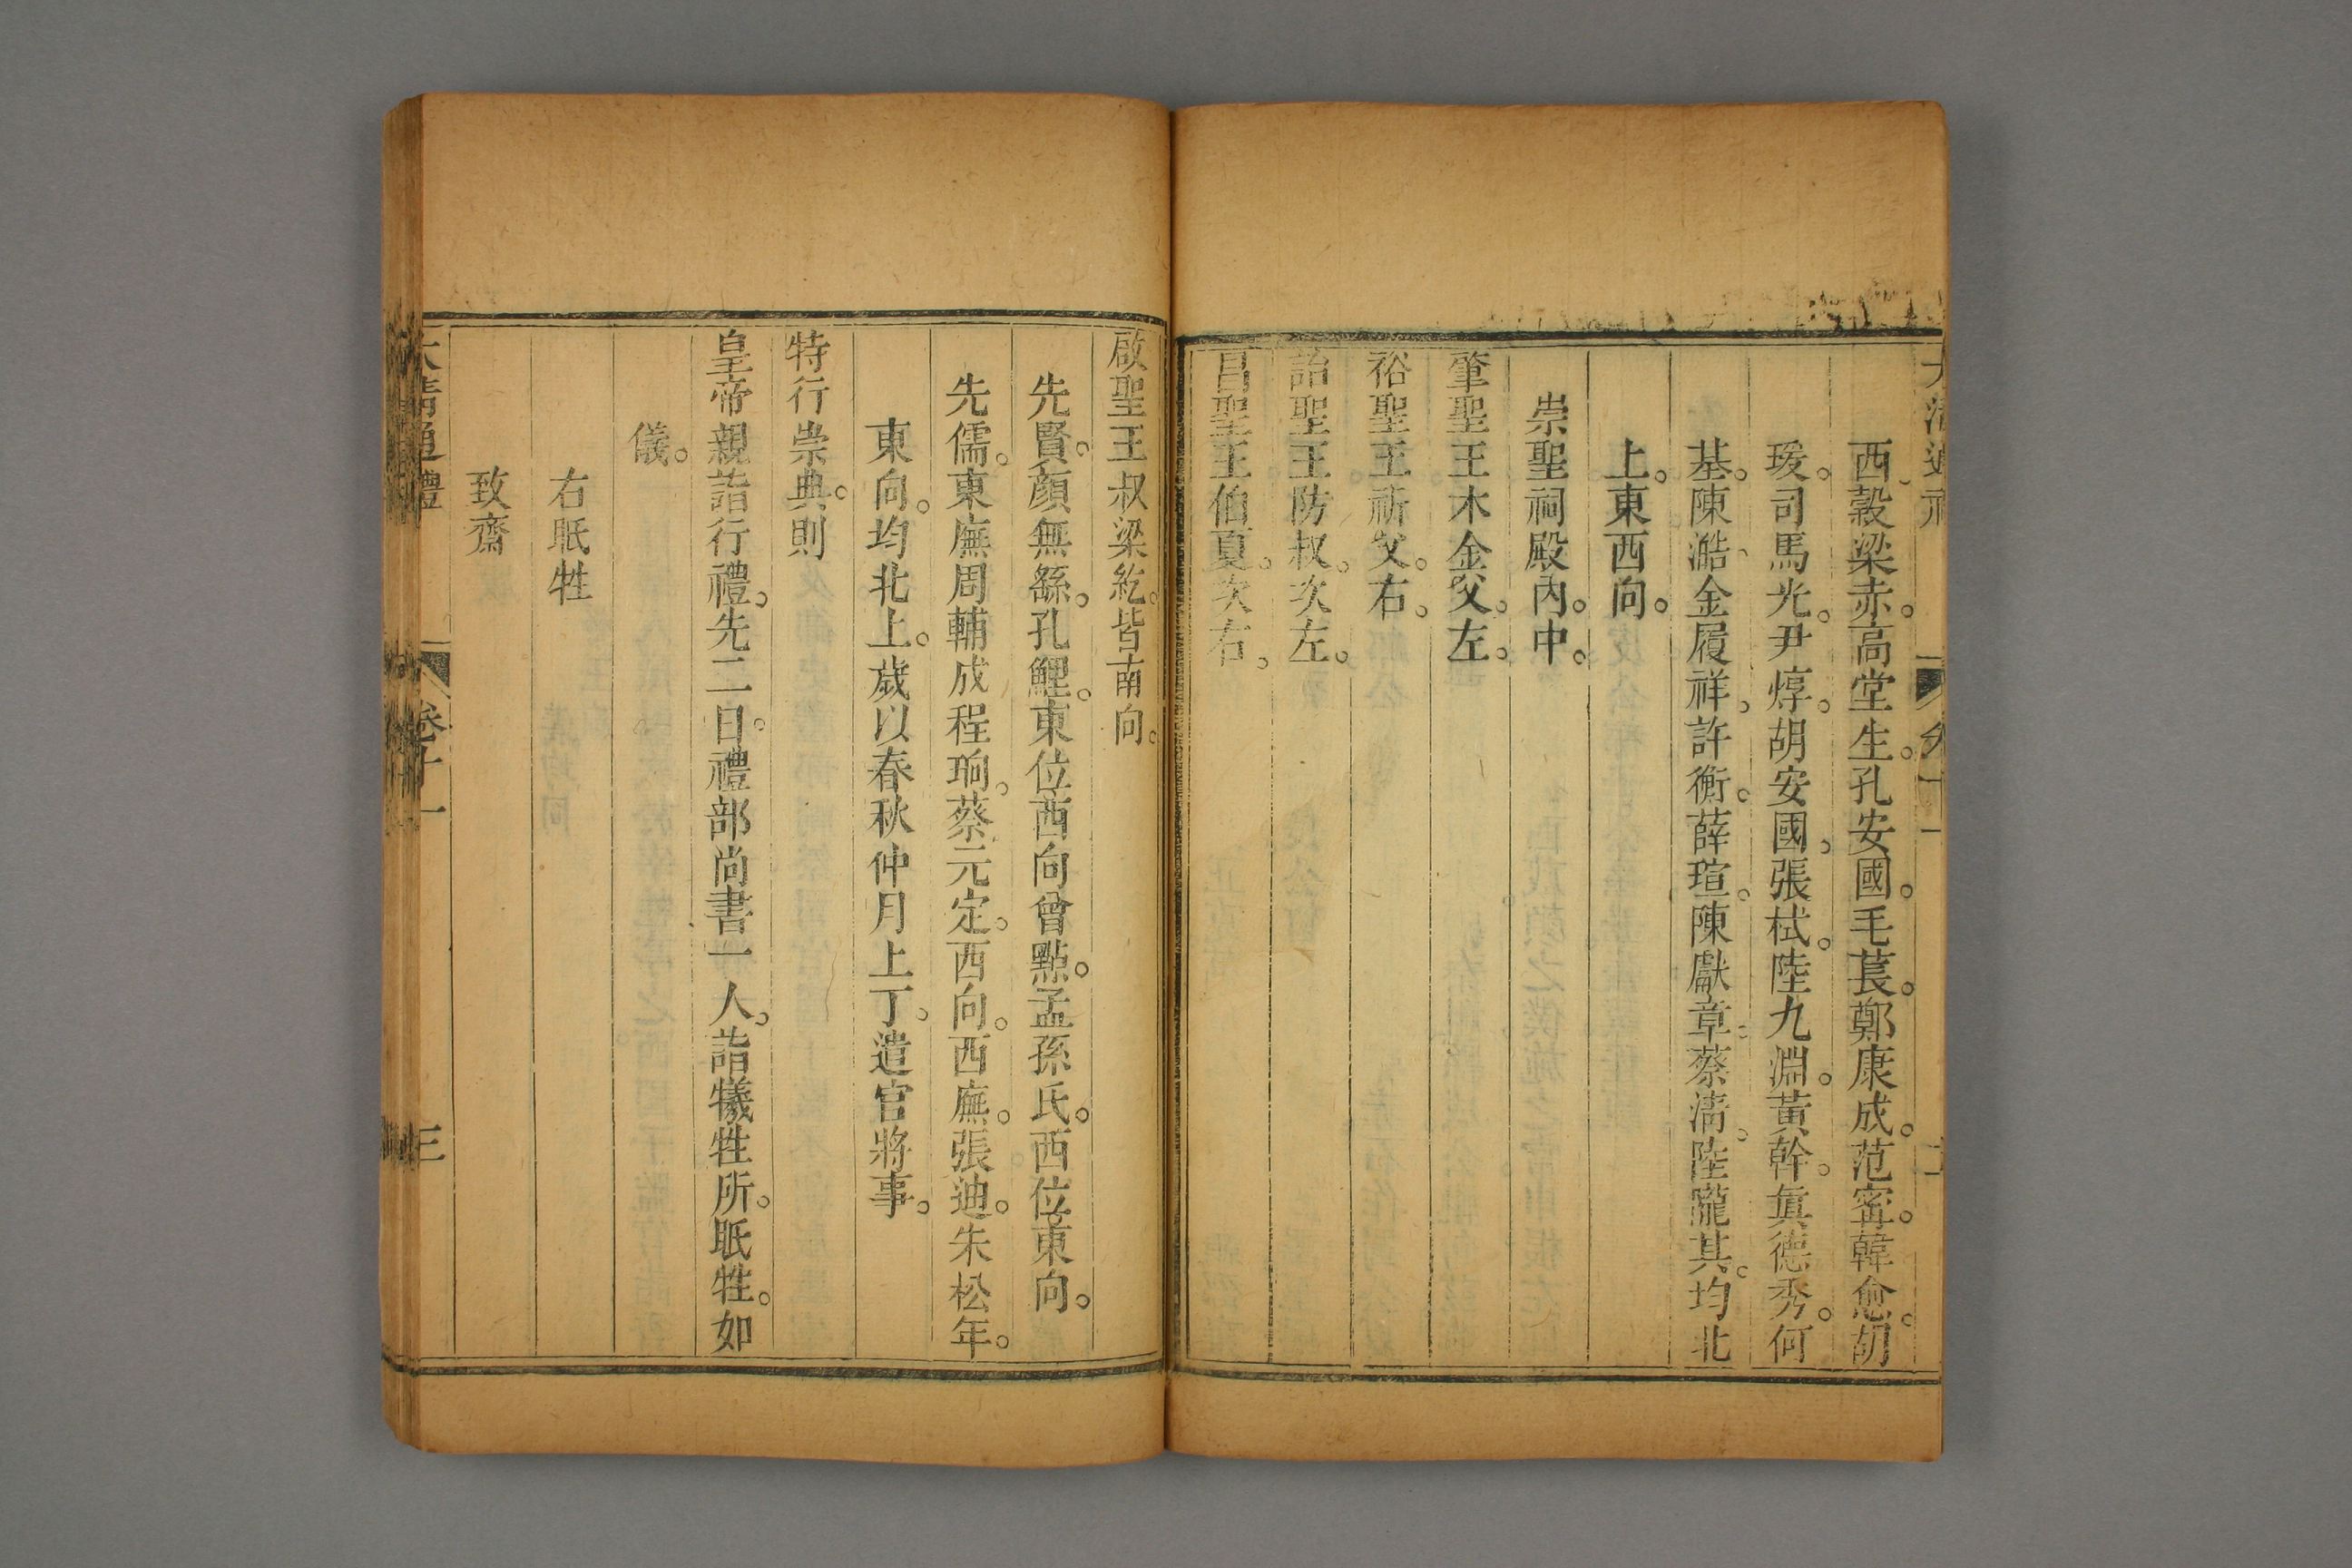 西。穀梁赤。高堂生。孔安國。毛萇。鄭康成。范甯。韓愈。胡
瑗。司馬光。尹焞。胡安國。張栻。陸九淵。黃幹。眞德秀。何
基。陳澔。金履祥。許衡。薛瑄。陳獻章。蔡淸。陸隴其。均北
上。東西向。
崇聖祠殿內。中。
肇聖王木金父。左。
裕聖王祈父。右。
詒聖王防叔。次左。
昌聖王伯夏。次右。
啟聖王叔梁紇。皆南向。
先賢。顏無繇。孔鯉。東位西向。曾點。孟孫氏。西位東向。
先儒。東廡周輔成程珦。蔡元定。西向。西廡。張迪。朱松年。
東向。均北上。歲以春秋仲月上丁。遣官將事。
特行崇典。則
皇帝親詣行禮。先二日。禮部尚書一人。詣犧牲所。眡牲。如
儀。
右眡牲
致齋
大清通禮 卷十一 三